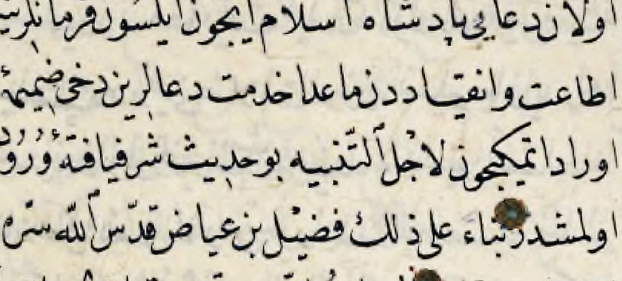 اولان دعايى پادشاه اسلام ايچون ايلسون فرمانلرينه
اطاعت وانقيـاددن ماعدا خدمت دعالرين دخى ضميمهٔ
اوراد اتمكيچون لاجل التّنبيه بو حديث شرف يافتهٔ وُرُود
اولمشدر بناء على ذلك فضيل بن عياض قدّس اللّه سرّه